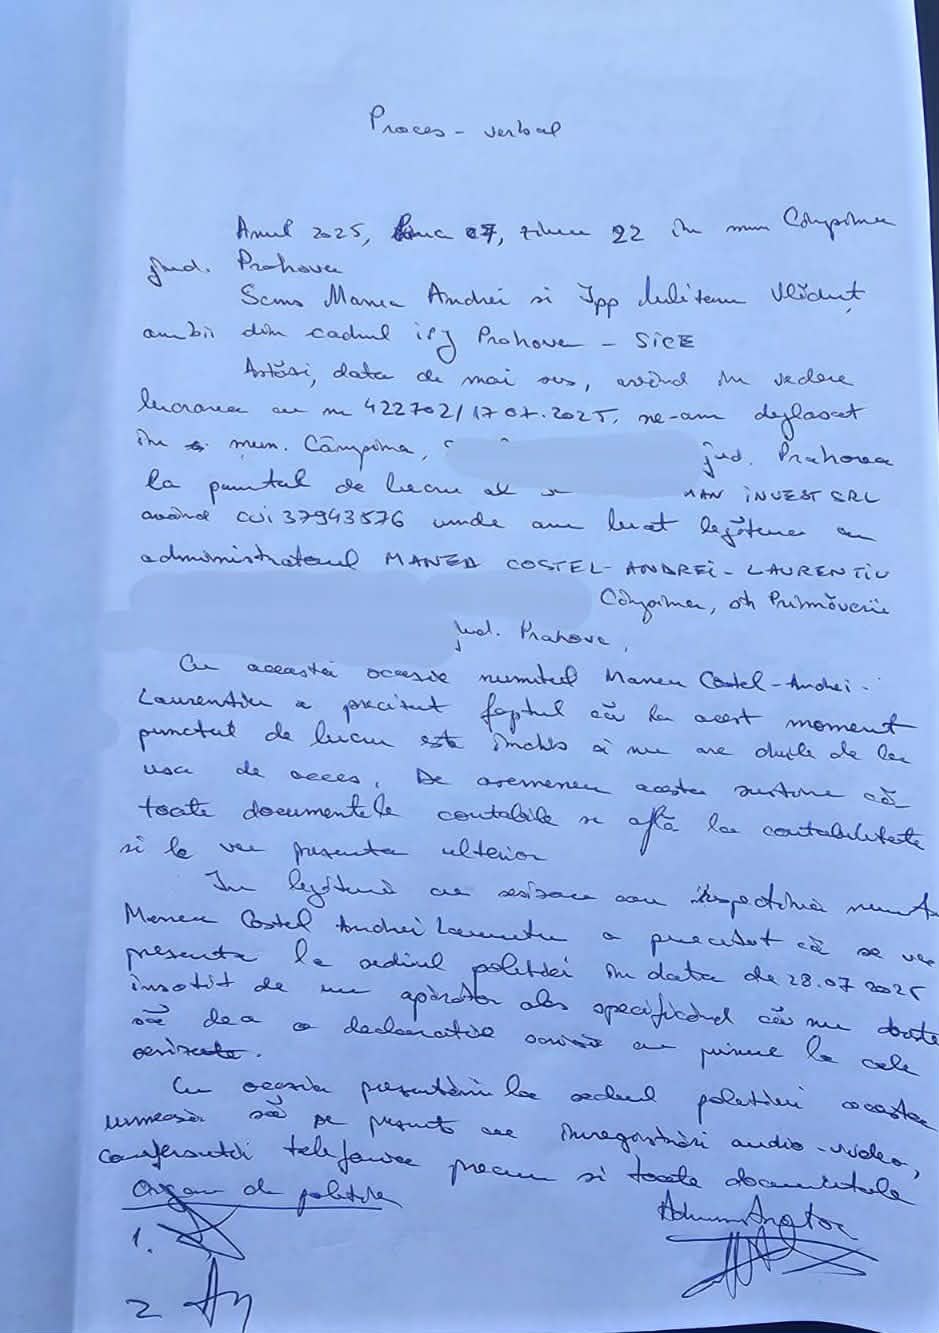 Proces - verbal
Anul 2025, luna 07, ziua 22 în mun Câmpina
jud. Prahova
Scms Manea Andrei si Ipp Vlăduț
ambii din cadrul ipj Prahova - SICE
Astăzi, data de mai sus, având în vedere
lucrarea cu nr 422702/17.07.2025, ne-am deplasat
în mun. Câmpina, jud. Prahova
la punctul de lucru al MAN INVEST SRL
având cui 37943576 unde am luat legătura cu
administratorul MANEA COSTEL-ANDREI-LAURENTIU
Câmpina, str Primăverii
jud. Prahova,
Cu aceasta ocazie numitul Manea Costel-Andrei-
Laurentiu a precizat faptul că la acest moment
punctul de lucru este închis si nu are cheile de la
usa de acces. De asemenea acesta sustine că
toate documentele contabile se află la contabilitate
si le va prezenta ulterior
In legătură cu sesizarea numitul
Manea Costel Andrei Laurentiu a precizat că se va
prezenta la sediul politiei în data de 28.07 2025
însotit de un apărător ales specificând că nu
să dea o declaratie scrisă cu privire la cele
sesizate.
Cu ocazia prezentării la sediul politiei acesta
urmează să se prezinte cu înregistrări audio-video,
convorbiri telefonice precum si toate documentele
Organ de politie
Administrator
1.
2